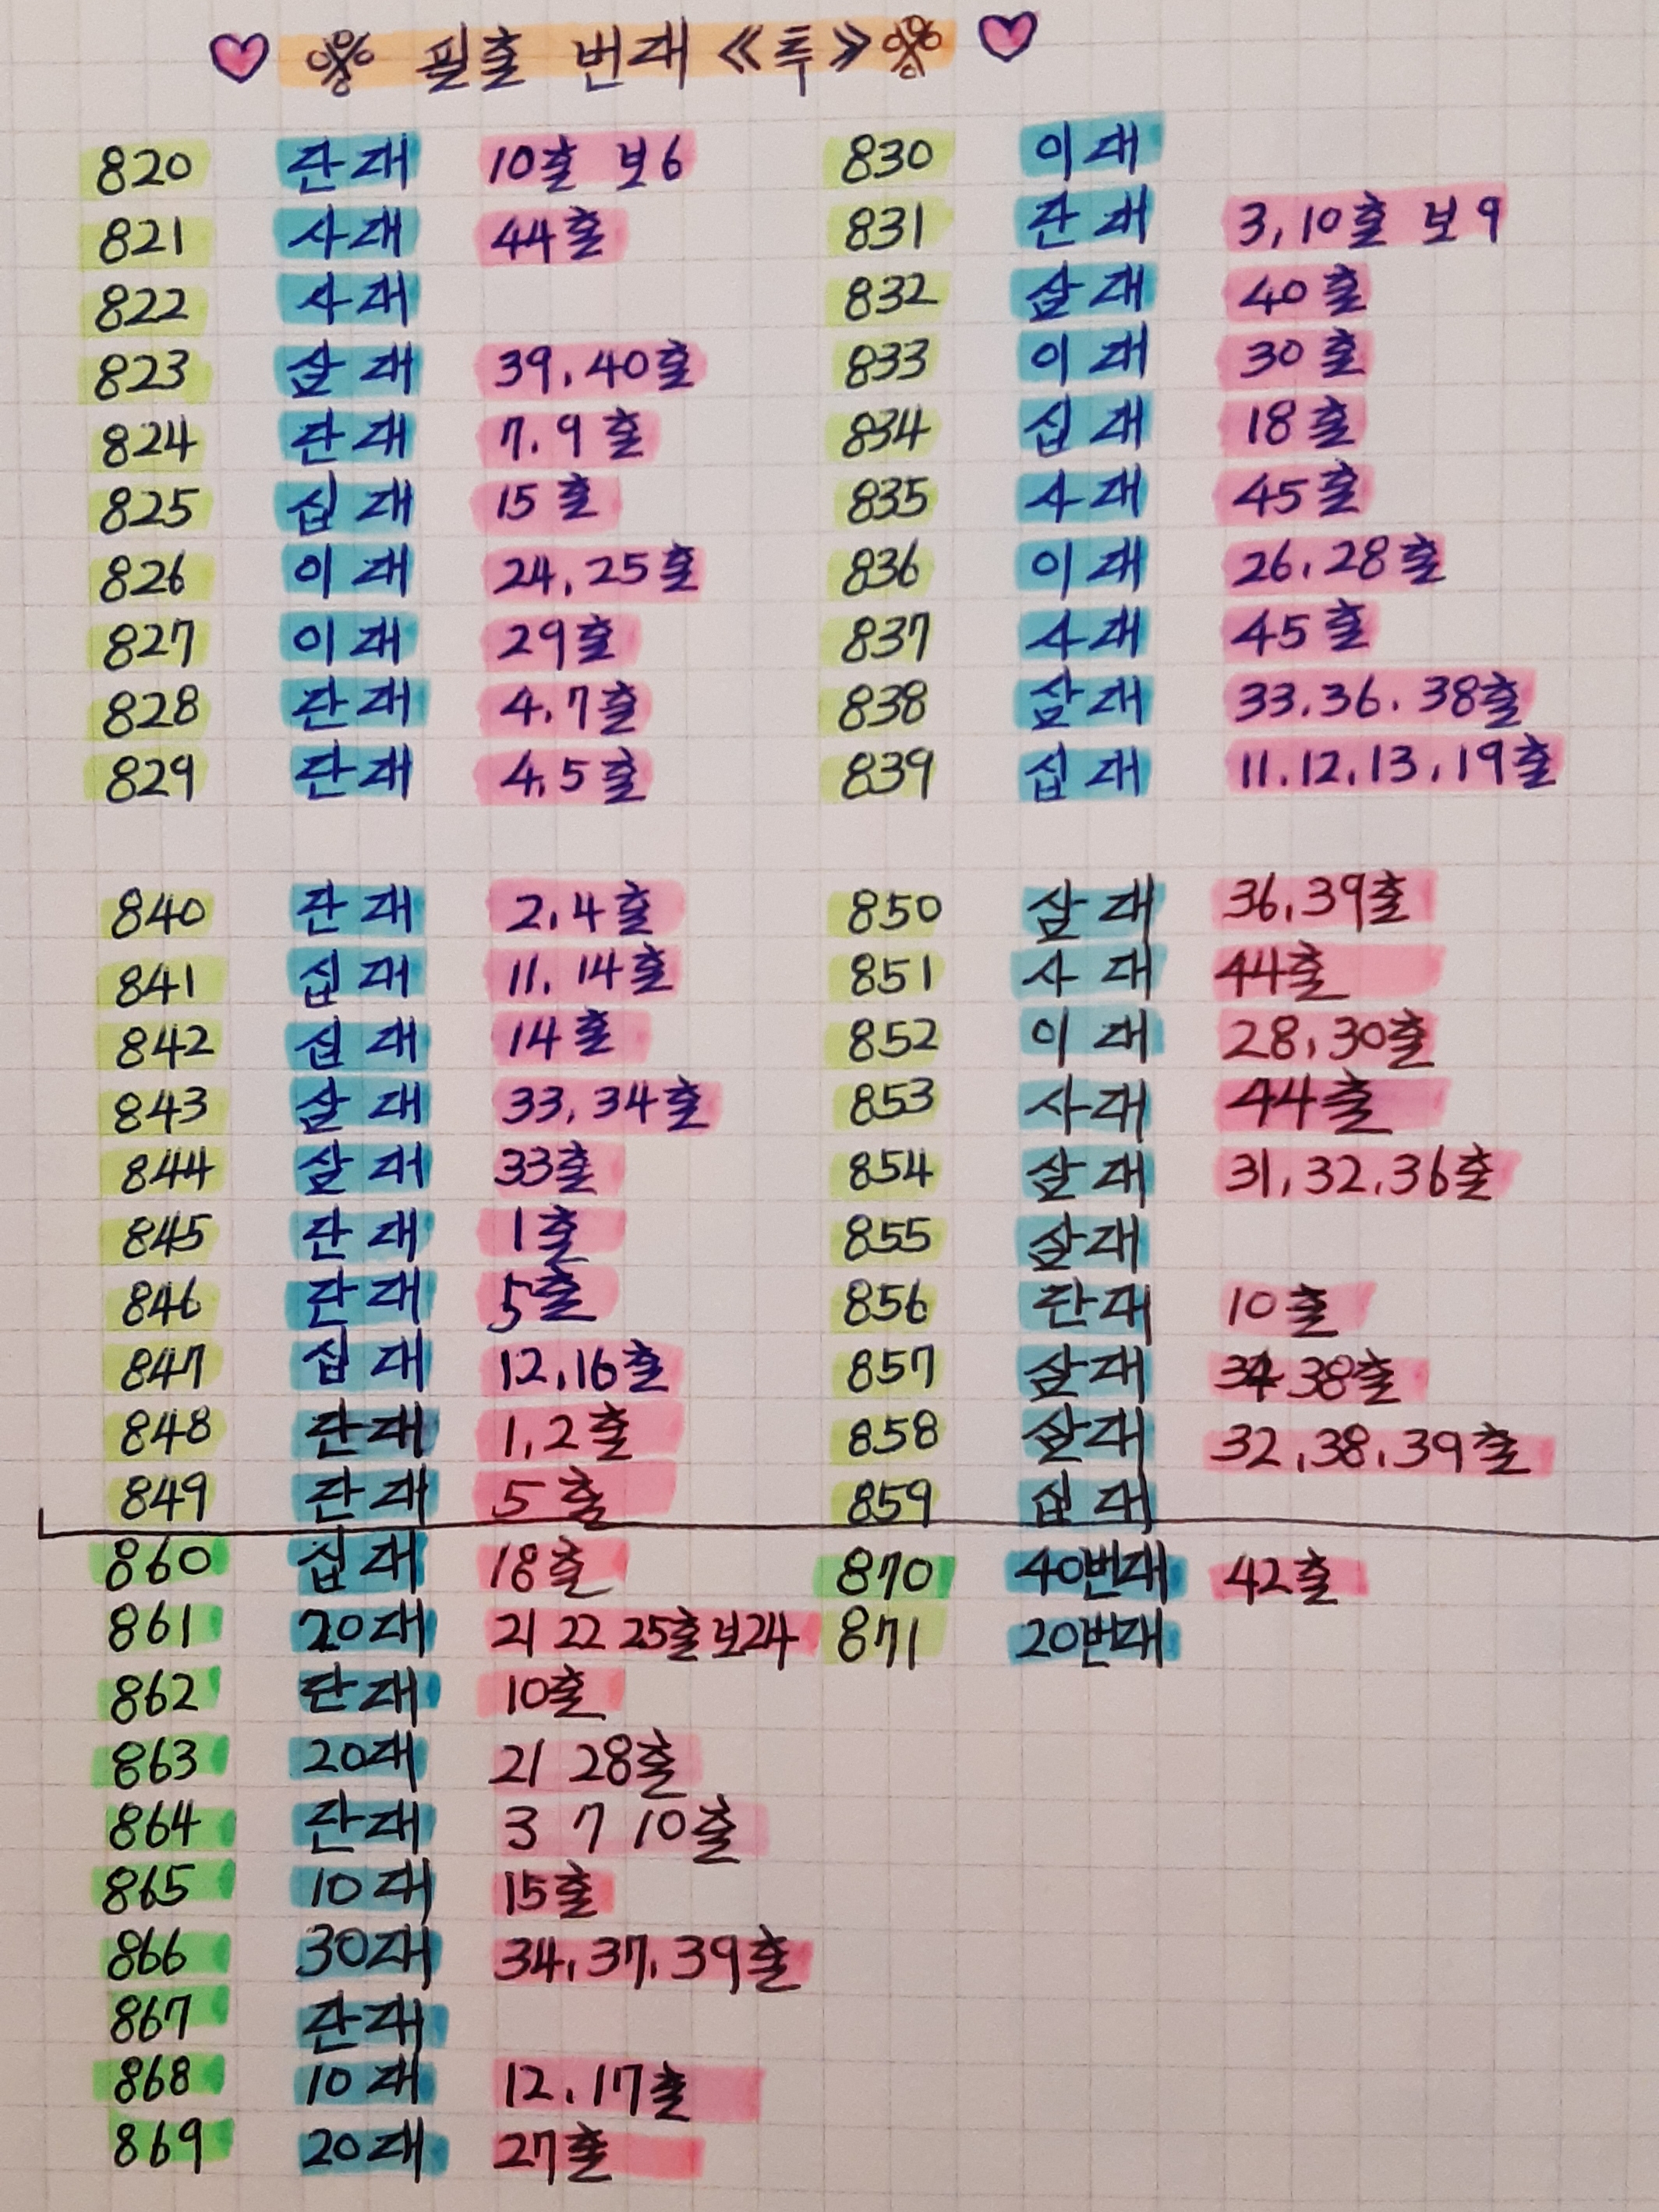 ※ 필출 번대 《투》 ※
820 단대 10출 보6
821 사대 44출
822 사대
823 삼대 39, 40출
824 단대 7. 9출
825 십대 15출
826 이대 24, 25출
827 이대 29출
828 단대 4, 7출
829 단대 4, 5출
830 이대
831 단대 3, 10출 보9
832 삼대 40출
833 이대 30출
834 십대 18출
835 사대 45출
836 이대 26, 28출
837 사대 45출
838 삼대 33. 36. 38출
839 십대 11. 12, 13, 19출
840 단대 2, 4출
841 십대 11, 14출
842 십대 14출
843 삼대 33, 34출
844 삼대 33출
845 단대 1출
846 단대 5출
847 십대 12, 16출
848 단대 1, 2출
849 단대 5출
850 삼대 36, 39출
851 사대 44출
852 이대 28, 30출
853 사대 44출
854 삼대 31, 32, 36출
855 삼대
856 단대 10출
857 삼대 34 38출
858 삼대 32, 38, 39출
859 십대
860 십대 18출
861 20대 21 22 25출 보24
862 단대 10출
863 20대 21 28출
864 단대 3 7 10출
865 10대 15출
866 30대 34, 37, 39출
867 단대
868 10대 12, 17출
869 20대 27출
870 40번대 42출
871 20번대